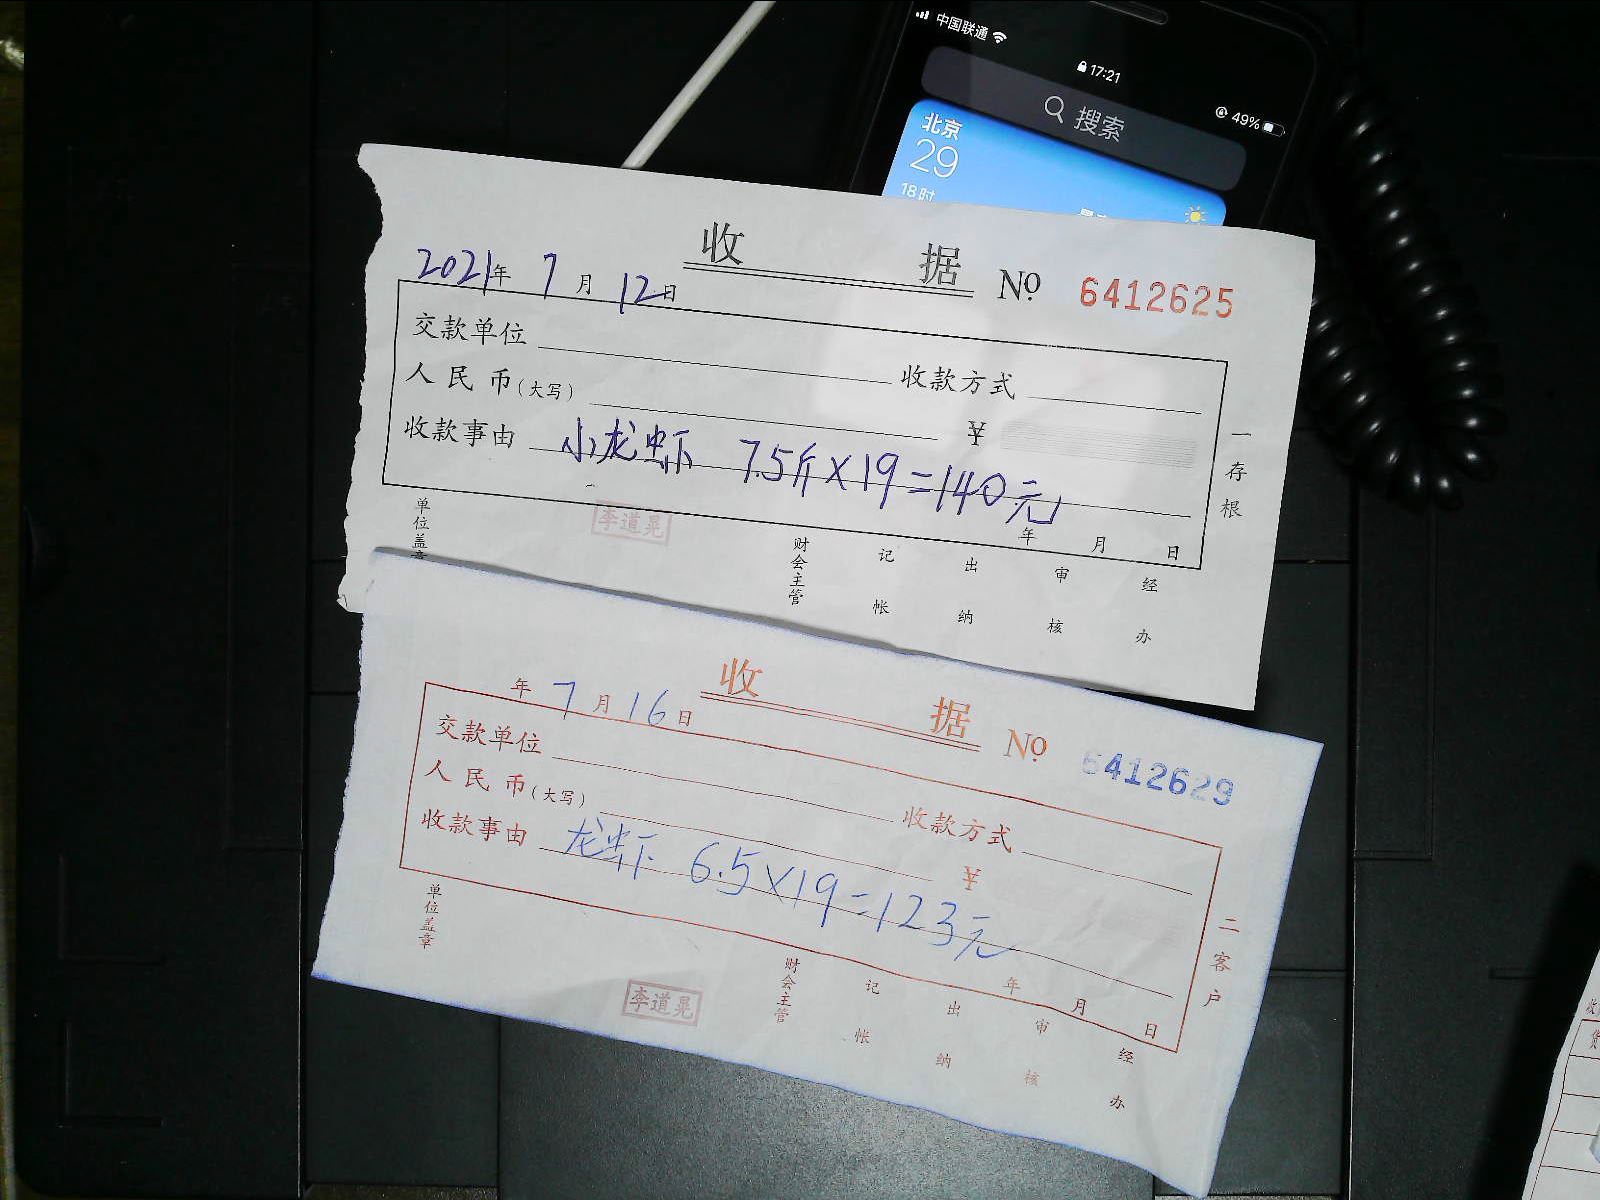 中国联通
17:21
49%
搜索
北京
29
18时
收 据 № 6412625
2021年 7月 12日
交款单位 收款方式
人民币(大写) ¥
收款事由 小龙虾 7.5斤×19=140元
年 月 日
一存根
单位盖章 李道晃 财会主管 记帐 出纳 审核 经办
收 据 № 6412629
年 7月 16日
交款单位 收款方式
人民币(大写) ¥
收款事由 龙虾 6.5×19=123元
年 月 日
二客户
单位盖章 李道晃 财会主管 记帐 出纳 审核 经办